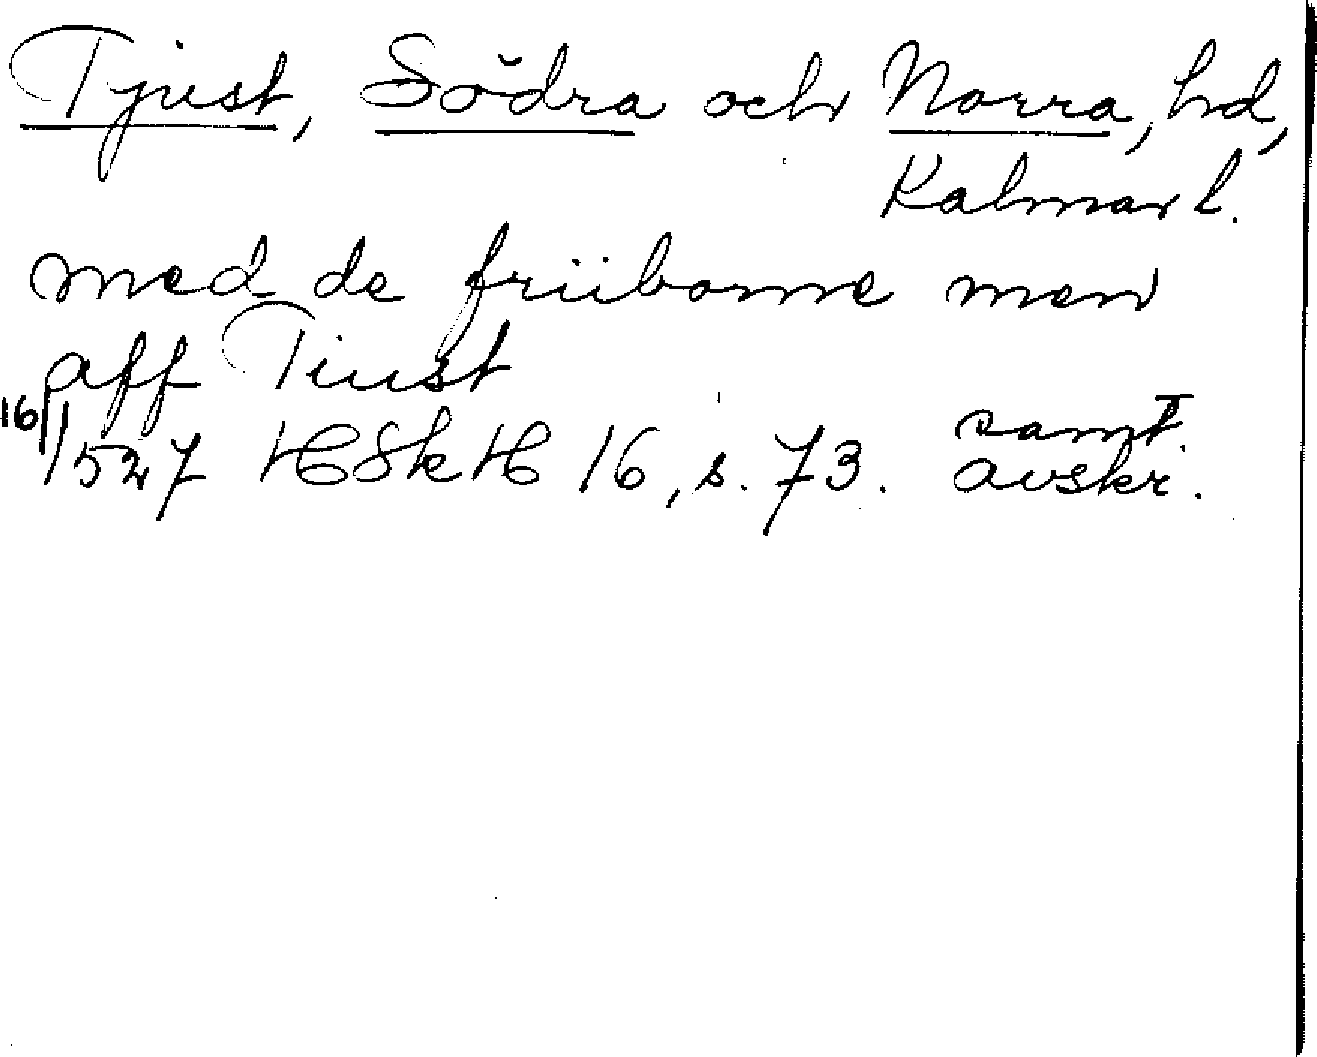 Tjust, Södra och Norra, hd,
Kalmar l.
med de friiborne men
aff Tiust
16/1 1527 HSkH 16, s. 73. samt. avskr.